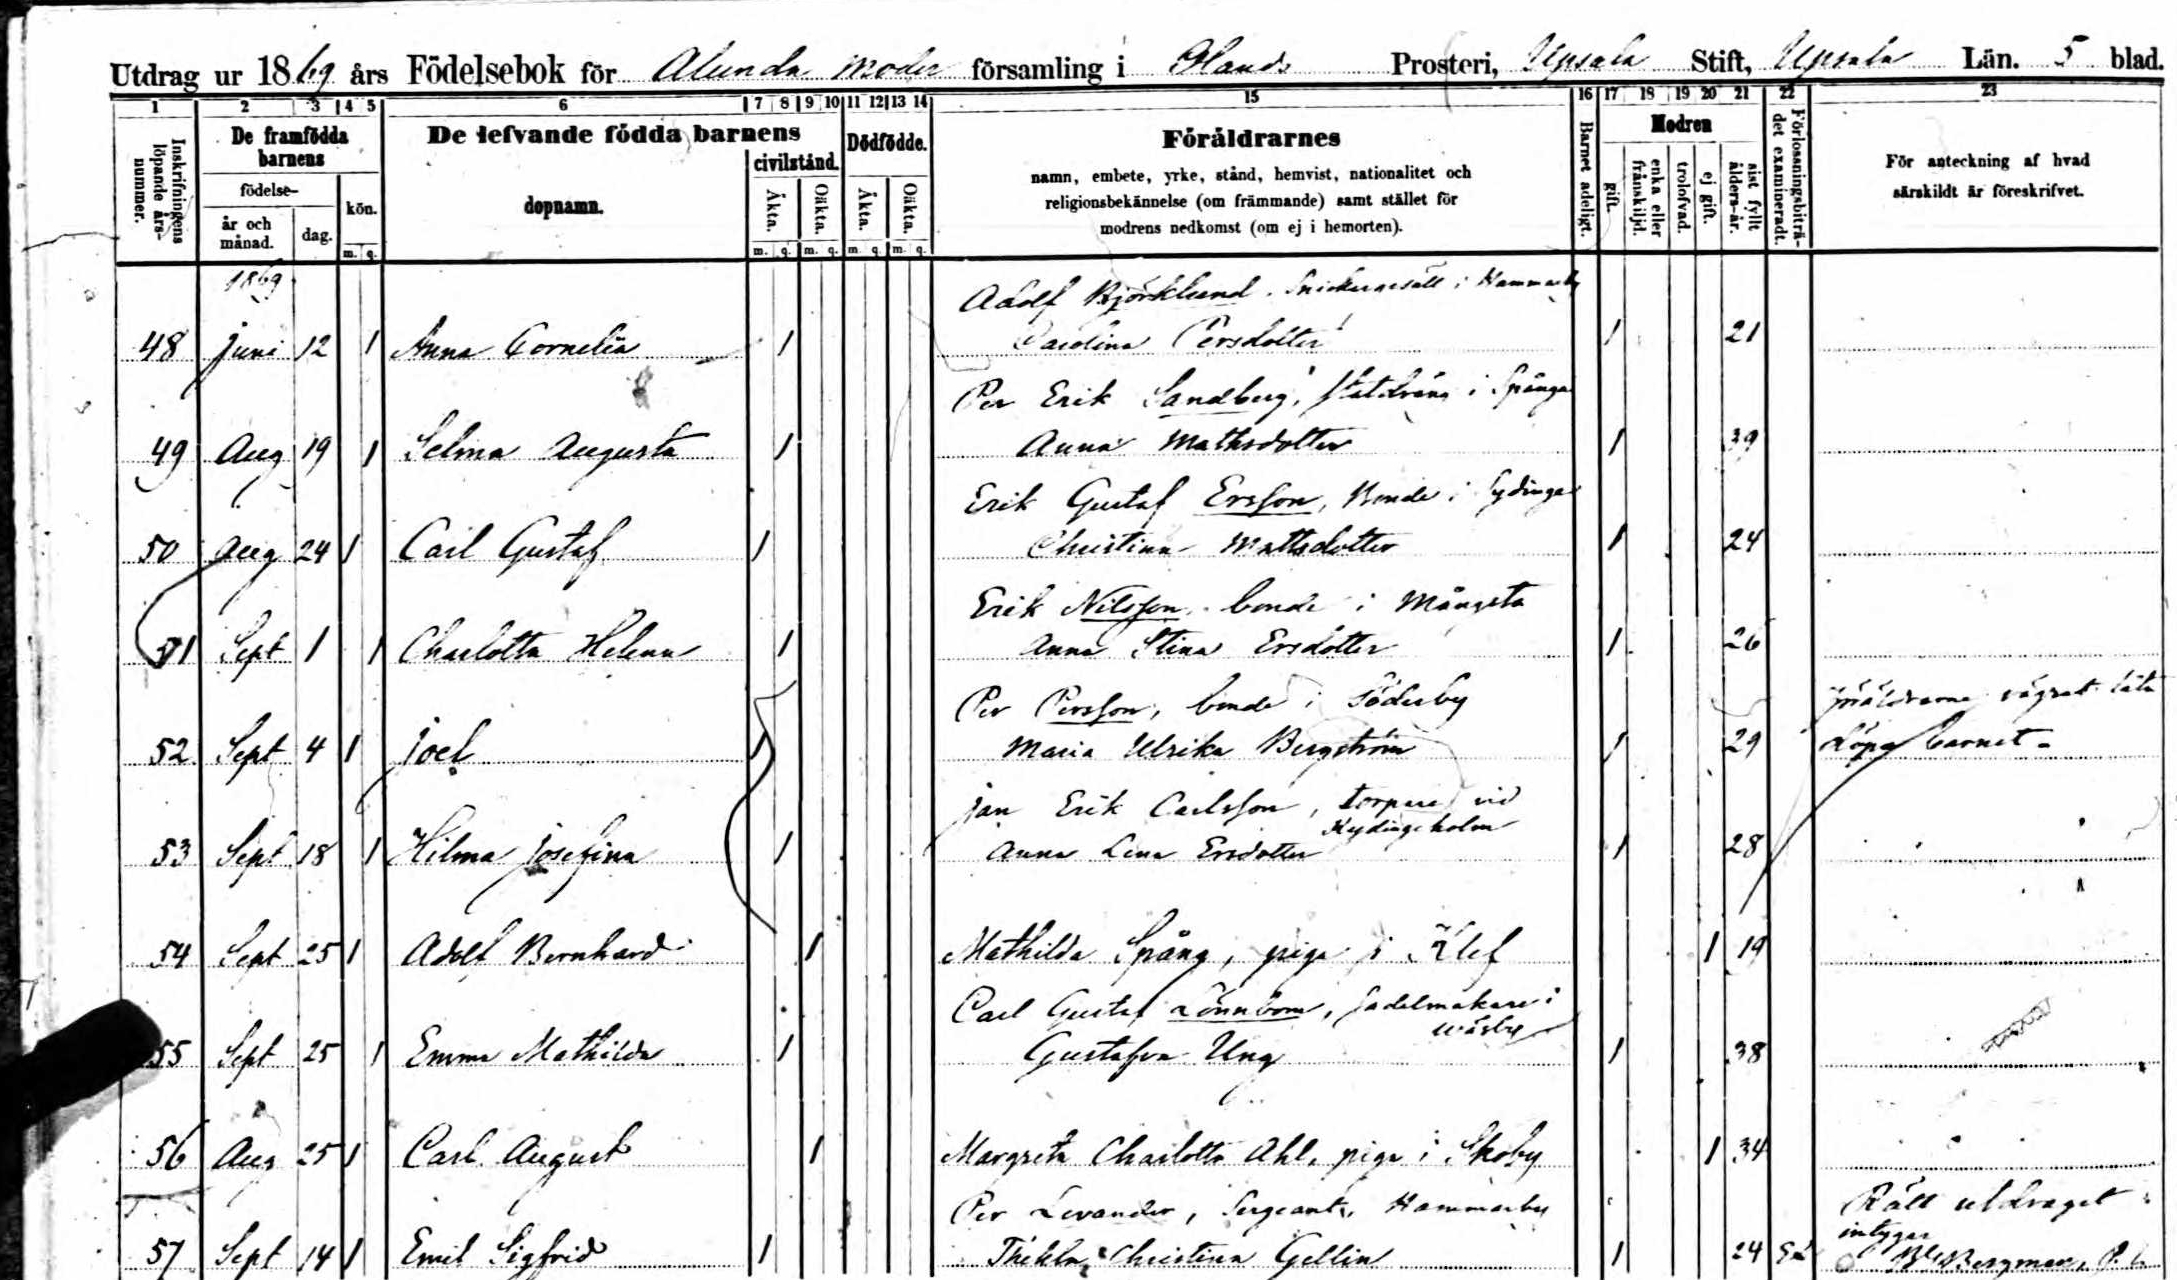 Utdrag ur 1869 års Födelsebok för Alunda moder församling i Olands Prosteri, Upsala Stift, Upsala Län. 5 blad.
1 2 3 4 5 6 7 8 9 10 11 12 13 14 15 16 17 18 19 20 21 22 23
Inskrifningens löpande års-nummer.
De framfödda barnens
födelse-
år och månad.
dag.
kön.
m. q.
De lefvande födda barnens
dopnamn.
civilstånd.
Äkta.
Oäkta.
m. q. m. q.
Dödfödde.
Äkta.
Oäkta.
m. q. m. q.
Föräldrarnes
namn, embete, yrke, stånd, hemvist, nationalitet och
religionsbekännelse (om främmande) samt stället för
modrens nedkomst (om ej i hemorten).
Barnet adeligt.
Modren
gift.
enka eller frånskiljd.
trolofvad.
ej gift.
sist fyllt ålders-år.
Förlossningsbiträ-det examineradt.
För anteckning af hvad
särskildt är föreskrifvet.
1869
Adolf Björklund. Snickaregesäll i Hammarby
48 juni 12 1 Anna Cornelia 1 Carolina Persdotter 1 21
Per Erik Sandberg, statdräng i Spånga
49 Aug 19 1 Selma Augusta 1 Anna Mathsdotter 1 39
Erik Gustaf Ersson, Bonde i Gydinge
50 Aug 24 1 Carl Gustaf 1 Christina Mattsdotter 1 24
Erik Nilsson, bonde i Mångsta
51 Sept 1 1 Charlotta Helena 1 Anna Stina Ersdotter 1 26
Per Persson, bonde i Söderby
föräldrarne vägrat låta
52 Sept 4 1 Joel 1 Maria Ulrika Bergström 1 29 döpa barnet.
Jan Erik Carlsson, torpare vid
Kydingeholm
53 Sept 18 1 Hilma Josefina 1 Anna Lena Ersdotter 1 28
54 Sept 25 1 Adolf Bernhard 1 Mathilda Spång, piga i Klef 1 19
Carl Gustaf Lönnbom, Sadelmakare i
Wäsby
55 Sept 25 1 Emma Mathilda 1 Gustafva Ung 1 38
56 Aug 25 1 Carl August 1 Margreta Charlotta Ahl, piga i Skoby 1 34
Per Levander, Sergeant, Hammarby
Rätt utdraget
intygar
57 Sept 14 1 Emil Sigfrid 1 Thekla Christina Gellin 1 24 Bergman